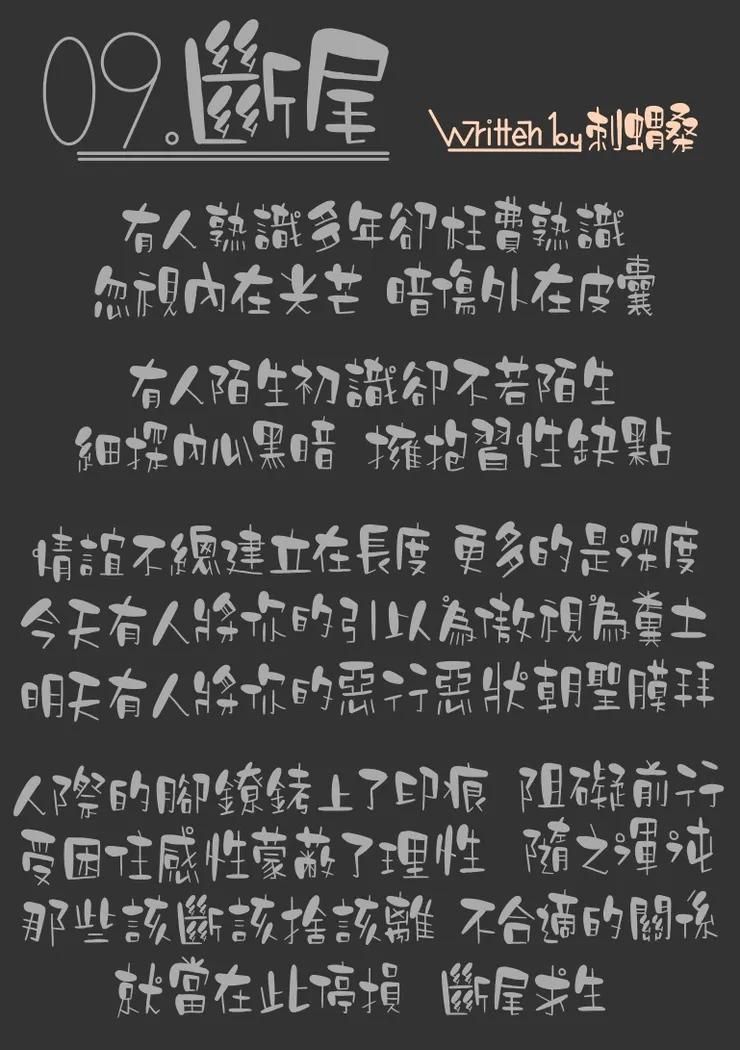 09.斷尾
Written by 刺蝟桑
有人熟識多年卻枉費熟識
忽視內在光芒 暗傷外在皮囊
有人陌生初識卻不若陌生
細探內心黑暗 擁抱習性缺點
情誼不總建立在長度 更多的是深度
今天有人將你的引以為傲視為糞土
明天有人將你的惡行惡狀朝聖膜拜
人際的腳鐐銬上了印痕 阻礙前行
受困住感性蒙蔽了理性 隨之渾沌
那些該斷該捨該離 不合適的關係
就當在此停損 斷尾求生